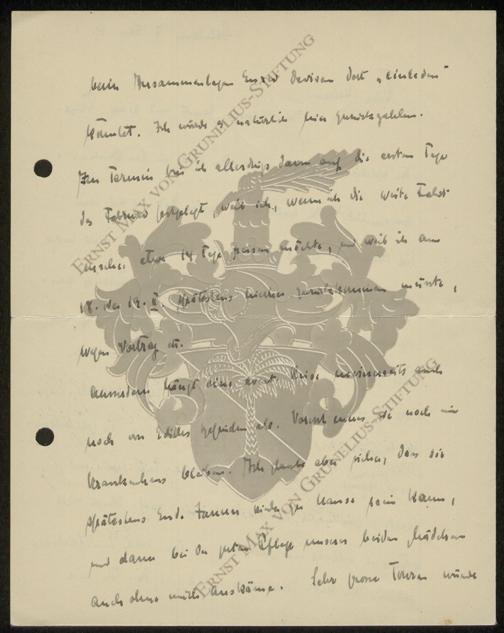 beim Zusammenlegen Ihrer Devisen dort "einladen"
könnten. Ich würde es natürlich hier zurückzahlen.
Im Termin bin ich allerdings dann auf die ersten Tage
des Februar festgelegt weil ich, wenn ich die weite Fahrt
mache, etwa 14 Tage reisen möchte, und weil ich am
18. oder 19. II. spätestens hierher zurückkommen müsste,
wegen Vortrag etc.
Ausserdem hängt diese event. Reise meinerseits auch
noch von Ediths Befinden ab. Vorerst muss sie noch im
Krankenhaus bleiben. Ich glaube aber sicher, dass sie
spätestens Ende Januar wieder zu Hause sein kann,
und dann bei der guten Pflege unserer beiden Mädchen
auch ohne mich auskäme. Sehr grosse Touren würde
ERNST MAX VON GRUNELIUS-STIFTUNG
ERNST MAX VON GRUNELIUS-STIFTUNG